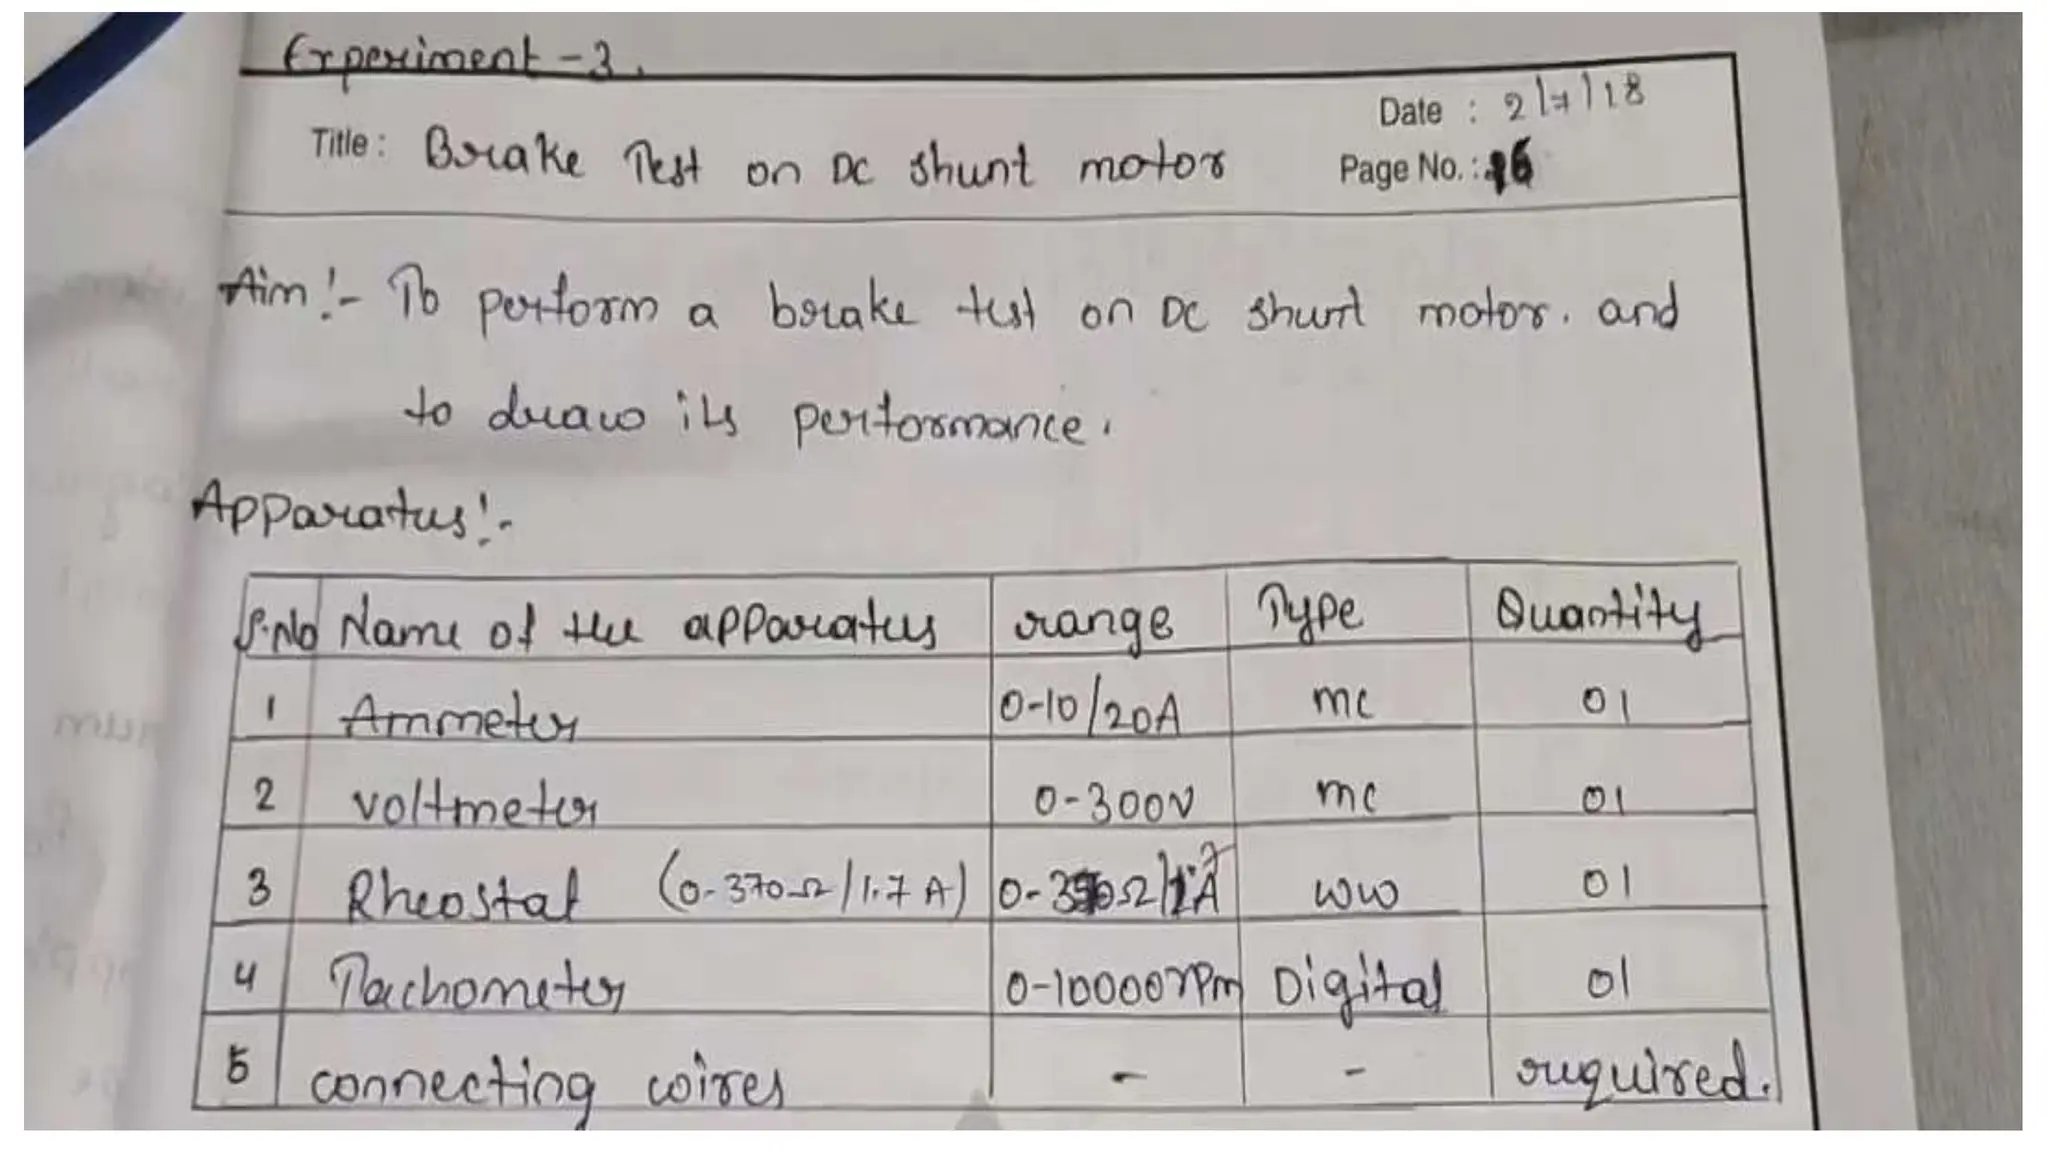 Experiment - 3.
Date : 2/7/18
Title: Brake Test on DC shunt motor
Page No.: 16
Aim:- To perform a brake test on DC shunt motor. and
to draw its performance.
Apparatus:-
S.No Name of the apparatus range Type Quantity
1 Ammeter 0-10/20A mc 01
2 voltmeter 0-300V mc 01
3 Rheostat (0-370Ω/1.7 A) ww 01
4 Tachometer 0-10000rpm Digital 01
5 connecting wires - - required.